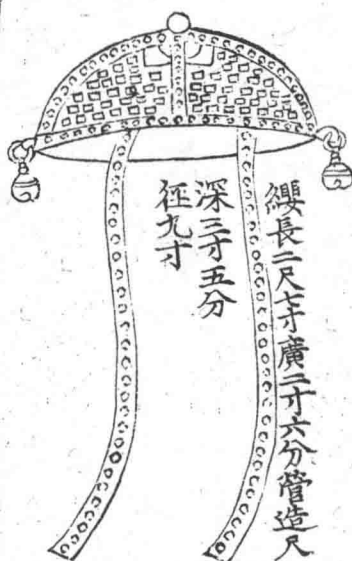 纓長二尺七寸廣二寸六分營造尺
深三寸五分
徑九寸